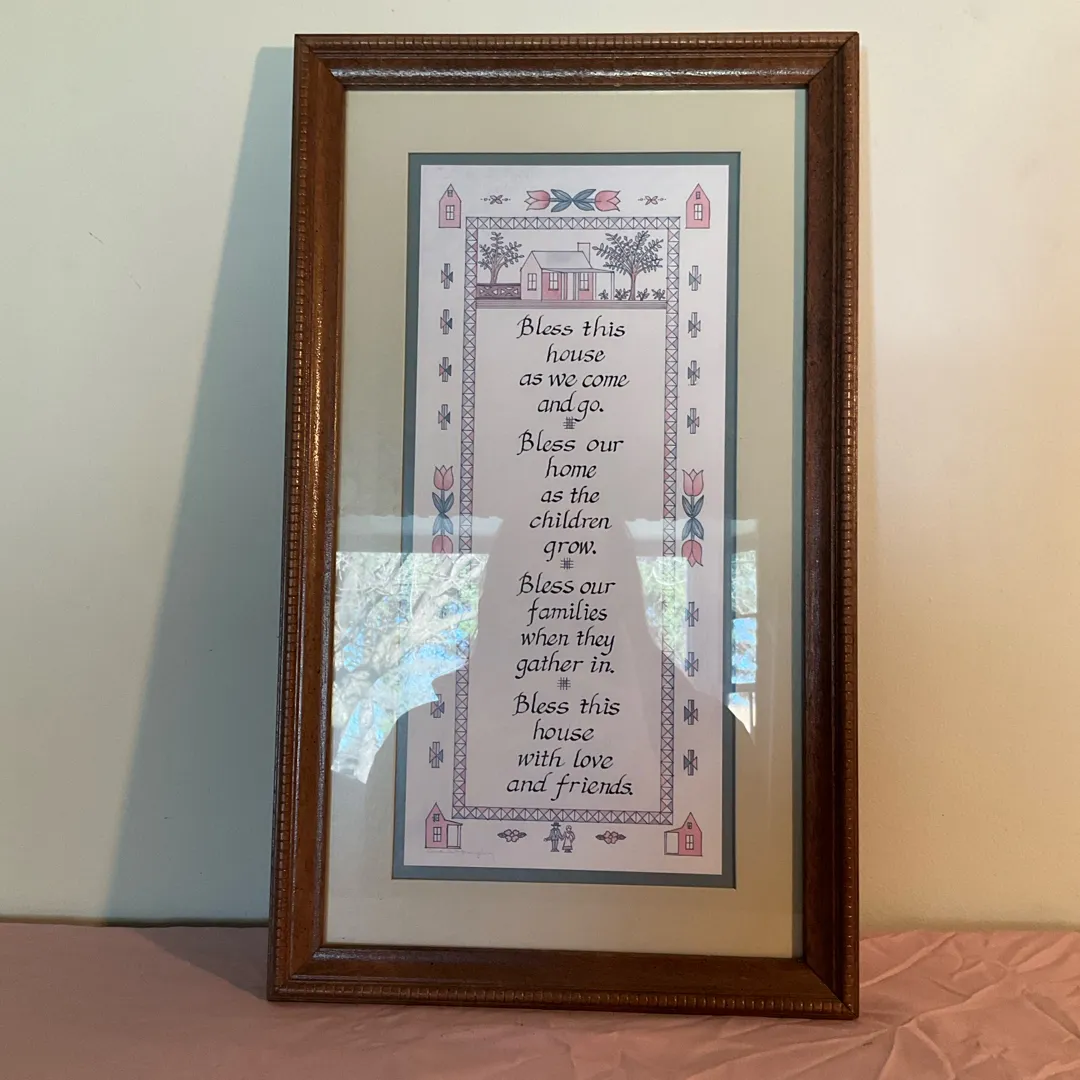 Bless this
house
as we come
and go.
Bless our
home
as the
children
grow.
Bless our
families
when they
gather in.
Bless this
house
with love
and friends.